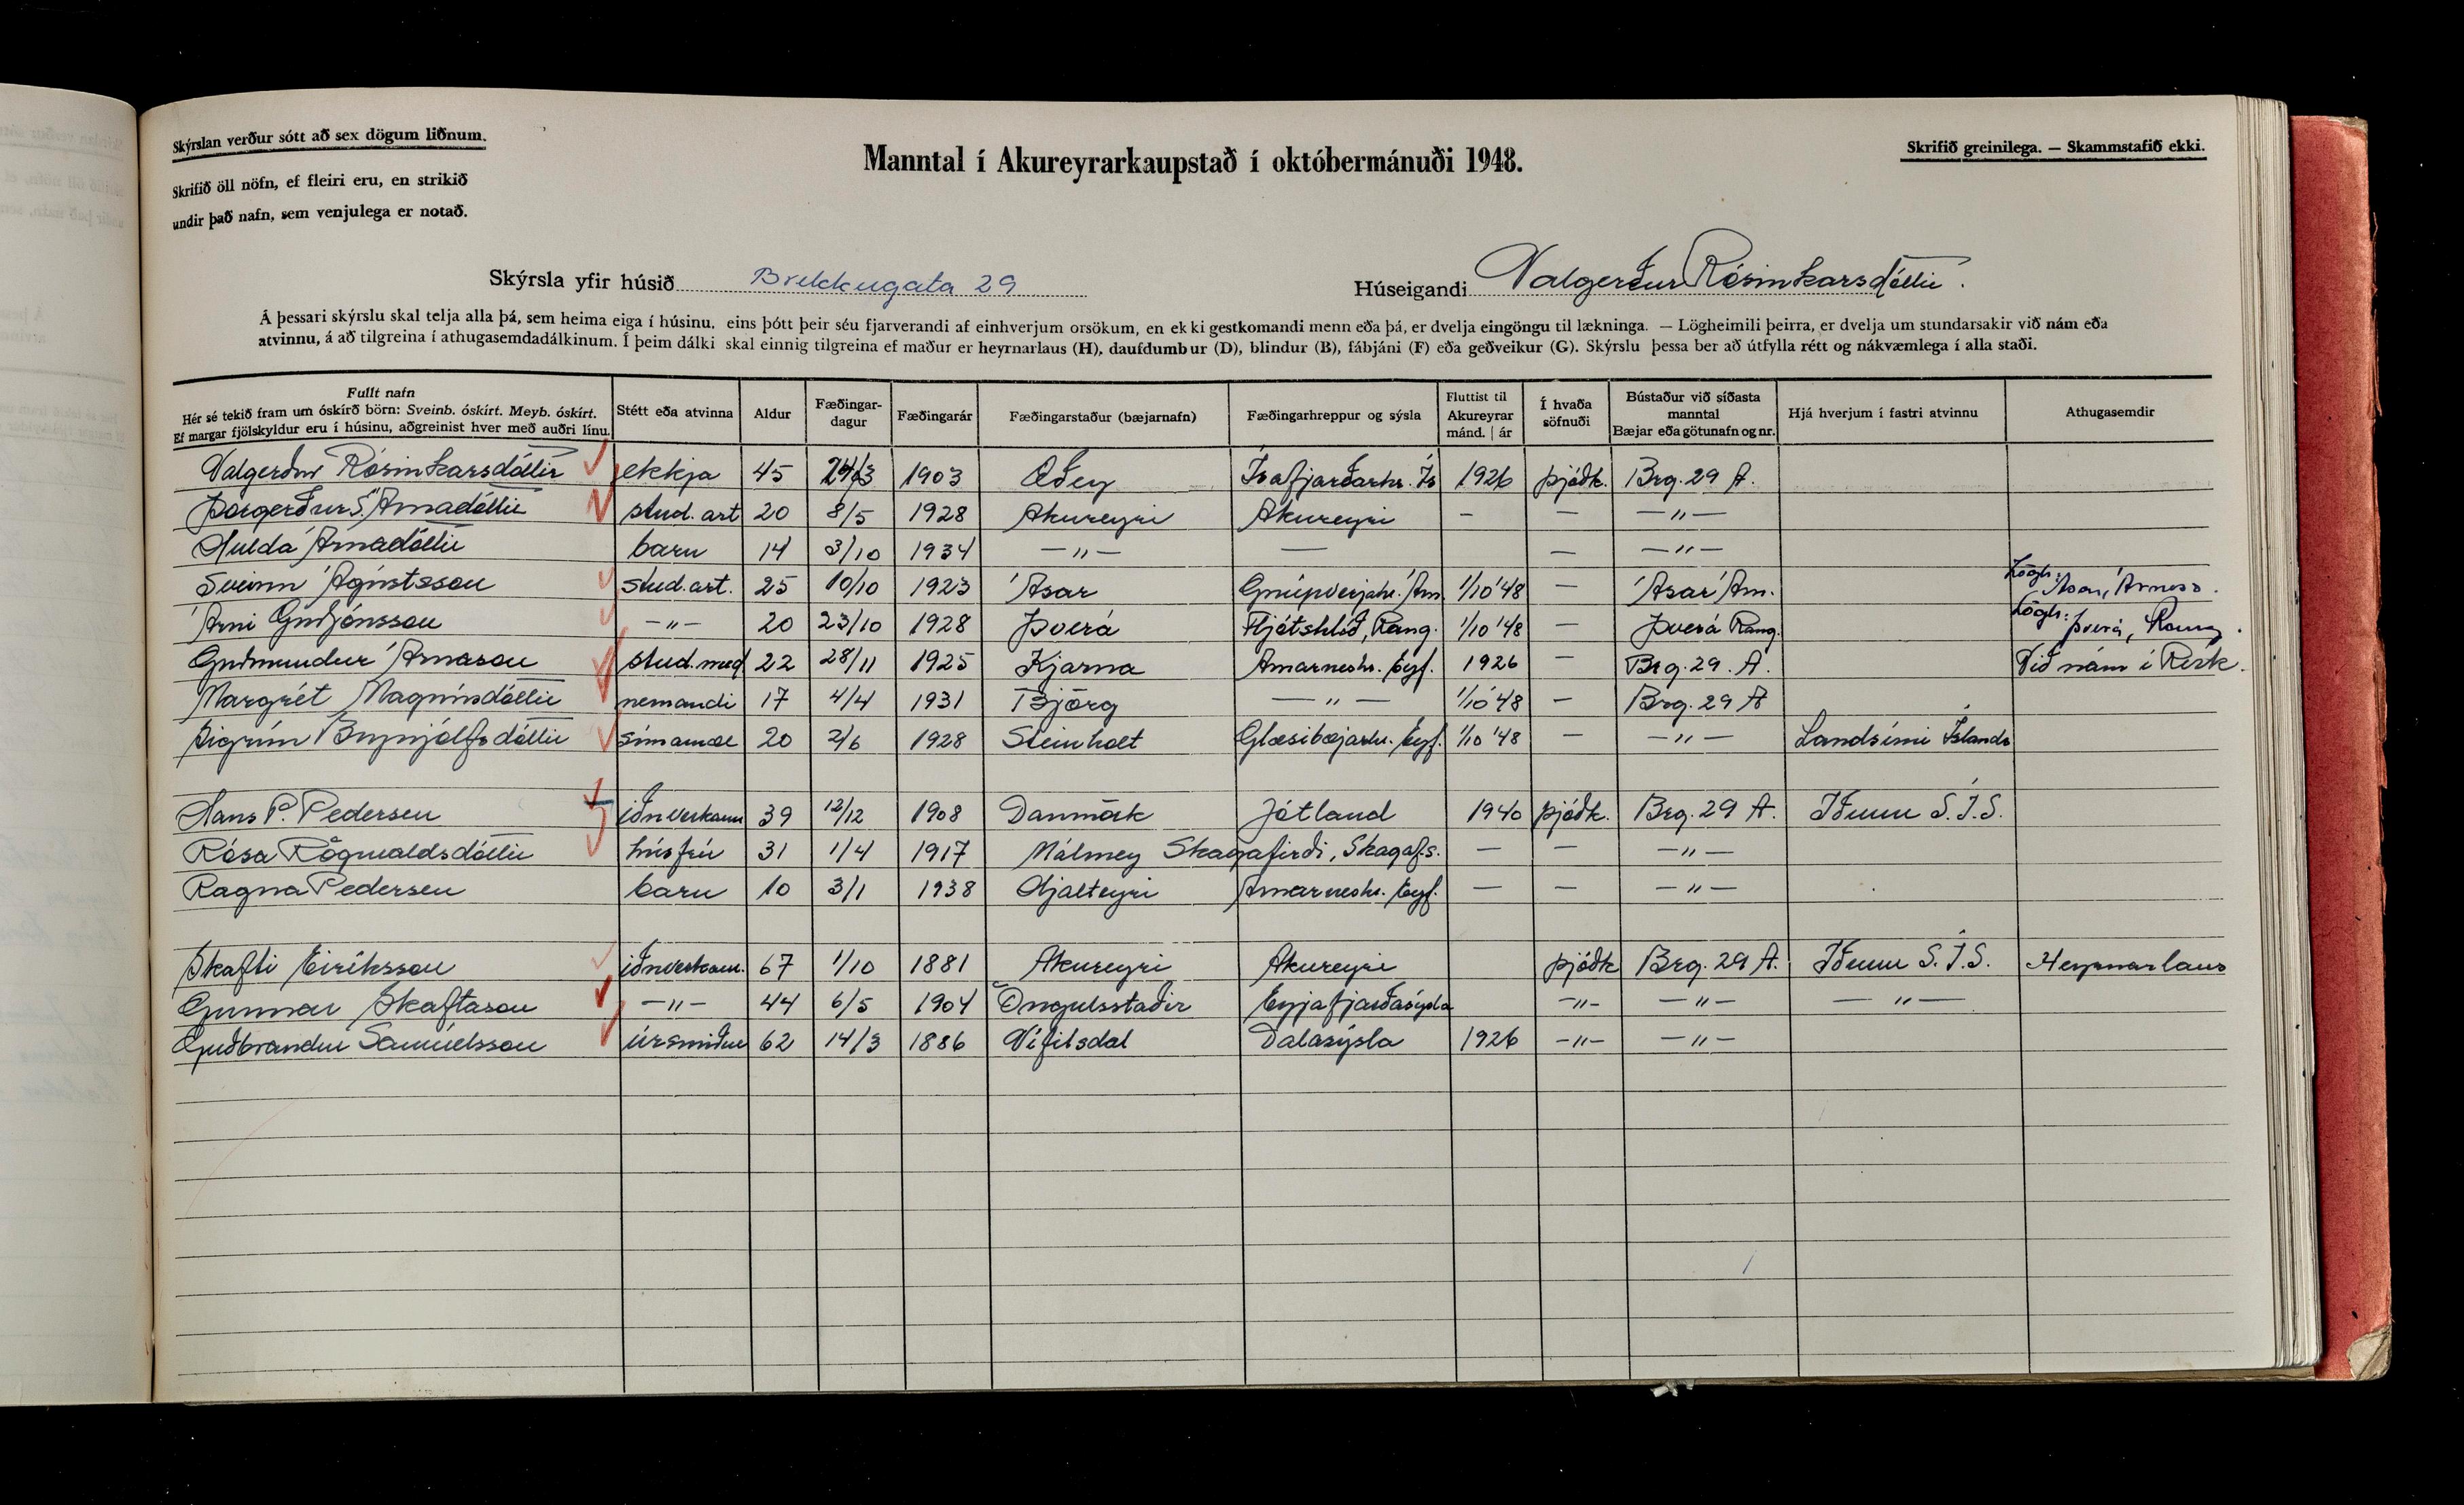 Skýrslan verður sótt að sex dögum liðnum.
Manntal í Akureyrarkaupstað í októbermánuði 1948.
Skrifið greinilega. — Skammstafið ekki.
Skrifið öll nöfn, ef fleiri eru, en strikið
undir það nafn, sem venjulega er notað.
Skýrsla yfir húsið Brekkugata 29
Húseigandi Valgerður Rósinkarsdóttir.
Á þessari skýrslu skal telja alla þá, sem heima eiga í húsinu, eins þótt þeir séu fjarverandi af einhverjum orsökum, en ekki gestkomandi menn eða þá, er dvelja eingöngu til lækninga. — Lögheimili þeirra, er dvelja um stundarsakir við nám eða
atvinnu, á að tilgreina í athugasemdadálkinum. Í þeim dálki skal einnig tilgreina ef maður er heyrnarlaus (H), daufdumbur (D), blindur (B), fábjáni (F) eða geðveikur (G). Skýrslu þessa ber að útfylla rétt og nákvæmlega í alla staði.
Fullt nafn
Hér sé tekið fram um óskírð börn: Sveinb. óskírt. Meyb. óskírt.
Ef margar fjölskyldur eru í húsinu, aðgreinist hver með auðri línu.
Stétt eða atvinna
Aldur
Fæðingar-
dagur
Fæðingarár
Fæðingarstaður (bæjarnafn)
Fæðingarhreppur og sýsla
Fluttist til
Akureyrar
mánd. | ár
Í hvaða
söfnuði
Bústaður við síðasta
manntal
Bæjar eða götunafn og nr.
Hjá hverjum í fastri atvinnu
Athugasemdir
Valgerður Rósinkarsdóttir ekkja 45 /3 1903 Æðey Ísafjarðarhr. Ís 1926 þjóðk. Brg. 29 A.
Þorgerður S. Árnadóttir stud. art 20 8/5 1928 Akureyri Akureyri - — —〃—
Hulda Árnadóttir barn 14 3/10 1934 —〃— — — —〃—
Sveinn Ágústsson stud. art. 25 10/10 1923 Ásar Gnúpverjahr. Árn. 1/10 '48 — Ásar Árn. Lögh.: Ásar, Árness.
Árni Guðjónsson —〃— 20 23/10 1928 Þverá Fljótshlíð, Rang. 1/10 '48 — Þverá Rang. Lögh.: Þverá, Rang.
Guðmundur Árnason stud. med 22 28/11 1925 Kjarna Arnarneshr. Eyf. 1926 — Brg. 29. A. Við nám í Rvík.
Margrét Magnúsdóttir nemandi 17 4/4 1931 Björg —〃— 1/10 '48 — Brg. 29 A
Sigrún Brynjólfsdóttir símamær 20 2/6 1928 Steinholt Glæsibæjarhr. Eyf. 1/10 '48 — —〃— Landsími Íslands
Hans P. Pedersen iðnverkam 39 12/12 1908 Danmörk Jótland 1940 þjóðk. Brg. 29 A. Iðunn S.Í.S.
Rósa Rögnvaldsdóttir húsfrú 31 1/4 1917 Málmey Skagafirði, Skagafs. — — —〃—
Ragna Pedersen barn 10 3/1 1938 Hjalteyri Arnarneshr. Eyf. — — —〃—
Skafti Eiríksson iðnverkam. 67 1/10 1881 Akureyri Akureyri þjóðk Brg. 29 A. Iðunn S.Í.S. Heyrnarlaus
Gunnar Skaftason —〃— 44 6/5 1904 Öngulsstaðir Eyjafjarðasýsla —〃— —〃— —〃—
Guðbrandur Samúelsson úrsmiður 62 14/3 1886 Vífilsdal Dalasýsla 1926 —〃— —〃—